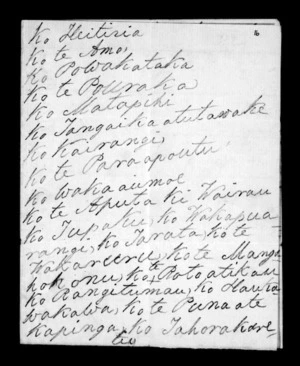 Ko Heitiria
Ko te Amo,
Ko Powakataka
Ko te Pouraka
Ko Matapihi
Ko Tangaihaatutawake
Ko Kairangi,
Ko te Paraapoutu
Ko wakaaumoe
Ko te Aputa ki Wairau
Ko Tupaku, ko Wakapua
rangi, ko Tarata, kote
Wakareuru, kote Manga
hok onu, ko te Potoatikau
Ko Rangitumau, ko Haura
wakawa, ko te Puna ate
Kapinga, ko Tahorakare